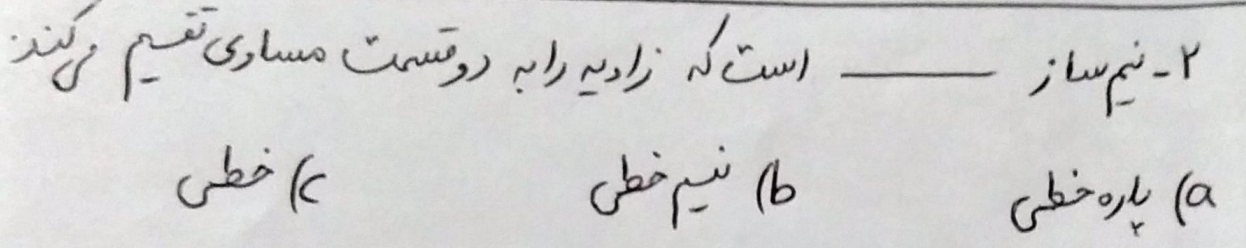 ۲- نیم ساز ـــــــ است که زاویه را به دو قسمت مساوی تقسیم می کند:
a) پاره خطی b) نیم خطی c) خطی